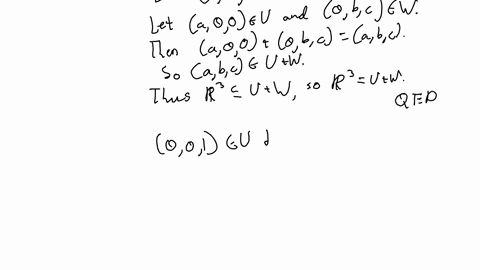 Let (a,0,0) ∈ U and (0,b,c) ∈ W.
Then (a,0,0) + (0,b,c) = (a,b,c).
So (a,b,c) ∈ U+W.
Thus ℝ³ ⊆ U+W, so ℝ³ = U+W.
QED
(0,0,1) ∈ U